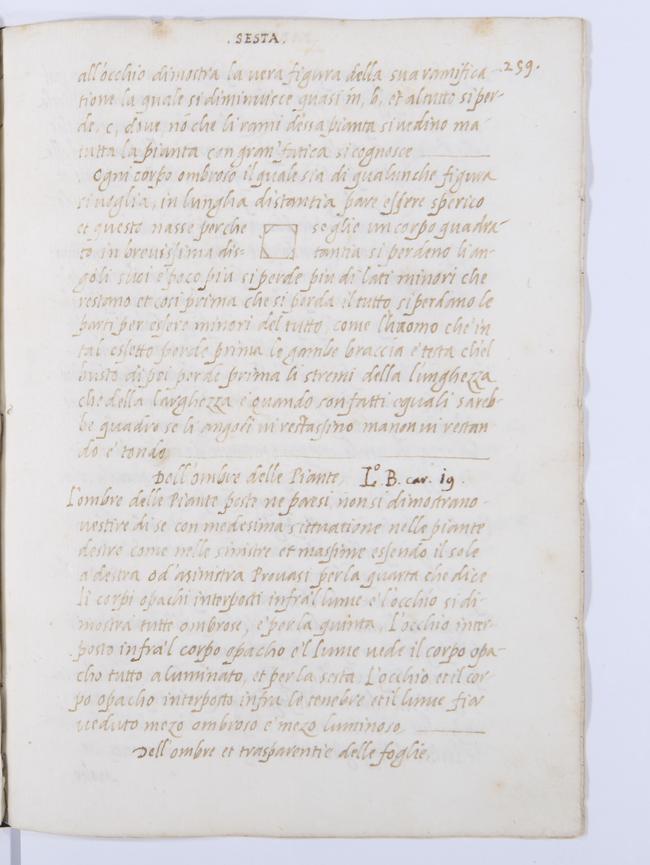 . SESTA .
259.
all'occhio dimostra la vera figura della sua ramifica-
tione la quale si diminuisce quasi in, b, et al tutto si per-
de, c, dove nõ che li rami d'essa pianta si vedino ma
tutta la pianta con gran' fatica si cognosce
Ogni corpo ombroso il quale sia di qualunche figura
si voglia, in lungha distantia pare essere sperico
et questo nasse perche se glie un corpo quadra-
to in brevissima dis- tantia si perdeno li an-
goli suoi e poco piu si perde piu di lati minori che
restano et cosi prima che si perda il tutto si perdano le
parti per essere minori del tutto, come l'huomo che in
tal perde prima le gambe braccia e testa ch'el
busto di poi perde prima li stremi della lunghezza
che della larghezza e quando son fatti eguali sareb-
be quadro se li angoli vi restassino ma non vi restan
do e' tondo
Dell'ombre delle Piante, Lº. B. car. 19.
L'ombre delle Piante poste ne paesi non si dimostrano
vestire di se con medesima situatione nelle piante
destre come nelle sinistre et massime essendo il sole
a destra o d'a sinistra Provasi per la quarta che dice
li corpi opachi interposti infra'l lume e l'occhio si di-
mostra tutte ombrose, e per la quinta, L'occhio inter-
posto infra'l corpo opacho e'l lume vede il corpo opa-
cho tutto aluminato, et per la sesta L'occhio et il cor-
po opacho interposto infra le tenebre et il lume fia
veduto mezo ombroso e mezo luminoso
Dell'ombre et trasparentie delle foglie,